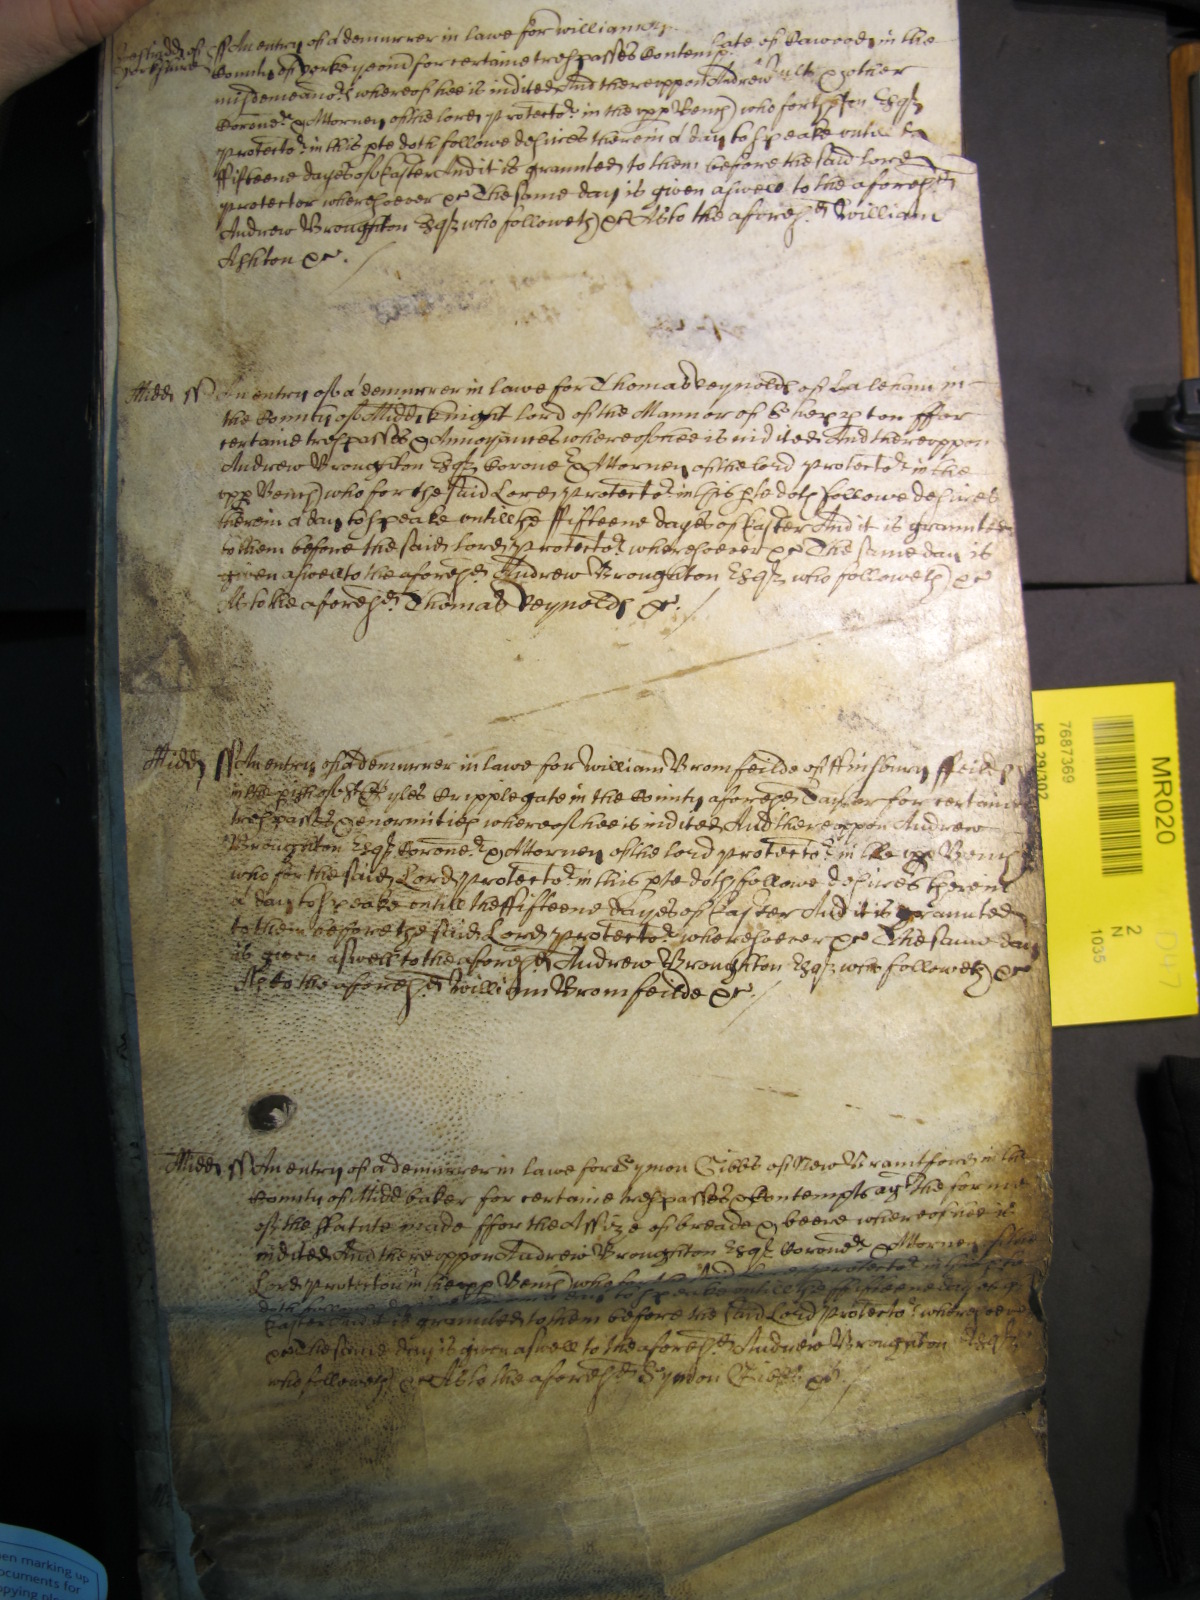 ss An entry of a demurrer in lawe for William
late of Cawood in the
County of Yorke yeom for certaine trespasses Contemp
misdemeanors whereof hee is indited And thereuppon Andrew
Coroner & Attorney of the lord Protector in the upp Bench who for the
Protector in this pte doth followe desires therein a day to speake untill
ffifteene dayes of Easter And it is graunted to them before the said lord
Protector wheresoever &c The same day is given aswell to the aforesd
Andrew Broughton Esqr who followeth &c As to the aforesd William
Ashton &c.
Midd ss An entry of a demurrer in lawe for Thomas Reynolds of Laleham in
the County of Midd Knight lord of the Mannor of Shepperton ffor
certaine trespasses & Annoyances whereof hee is indited And thereuppon
Andrew Broughton Esqr Coroner & Attorney of the lord Protector in the
upp Bench who for the said Lord Protector in this pte doth followe desires
therein a day to speake untill the ffifteene dayes of Easter And it is graunted
to them before the said lord Protector wheresoever &c The same day is
given aswell to the aforesd Andrew Broughton Esqr who followeth &c
As to the aforesd Thomas Reynolds &c.
Midd ss An entry of a demurrer in lawe for William Bromfeilde of ffinsbury ffeilds
in the pish of St Gyles Cripplegate in the County aforesd Taylor for certaine
trespasses & enormities whereof hee is indited And thereuppon Andrew
Broughton Esqr Coroner & Attorney of the lord Protector in the upp Bench
who for the said Lord Protector in this pte doth followe desires therein
a day to speake untill the ffifteene dayes of Easter And it is graunted
to them before the said Lord Protector wheresoever &c The same day
is given aswell to the aforesd Andrew Broughton Esqr who followeth &c
As to the aforesd William Bromfeilde &c.
Midd ss An entry of a demurrer in lawe for Symon Gibbs of New Braintford in the
County of Midd baker for certaine trespasses & Contempts agt the forme
of the Statute made ffor the Assize of breade & beere whereof hee is
indited And thereuppon Andrew Broughton Esqr Coroner & Attorney of the
Lord Protector in the upp Bench who for the said Lord Protector in this pte
doth followe desires therein a day to speake untill the ffifteene dayes of
Easter And it is graunted to them before the said Lord Protector wheresoever
&c The same day is given aswell to the aforesd Andrew Broughton Esqr
who followeth &c As to the aforesd Symon Gibbs &c.
MR020
7687369
KB 29/302
2
N
1035
D47
en marking up
ocuments for
opying